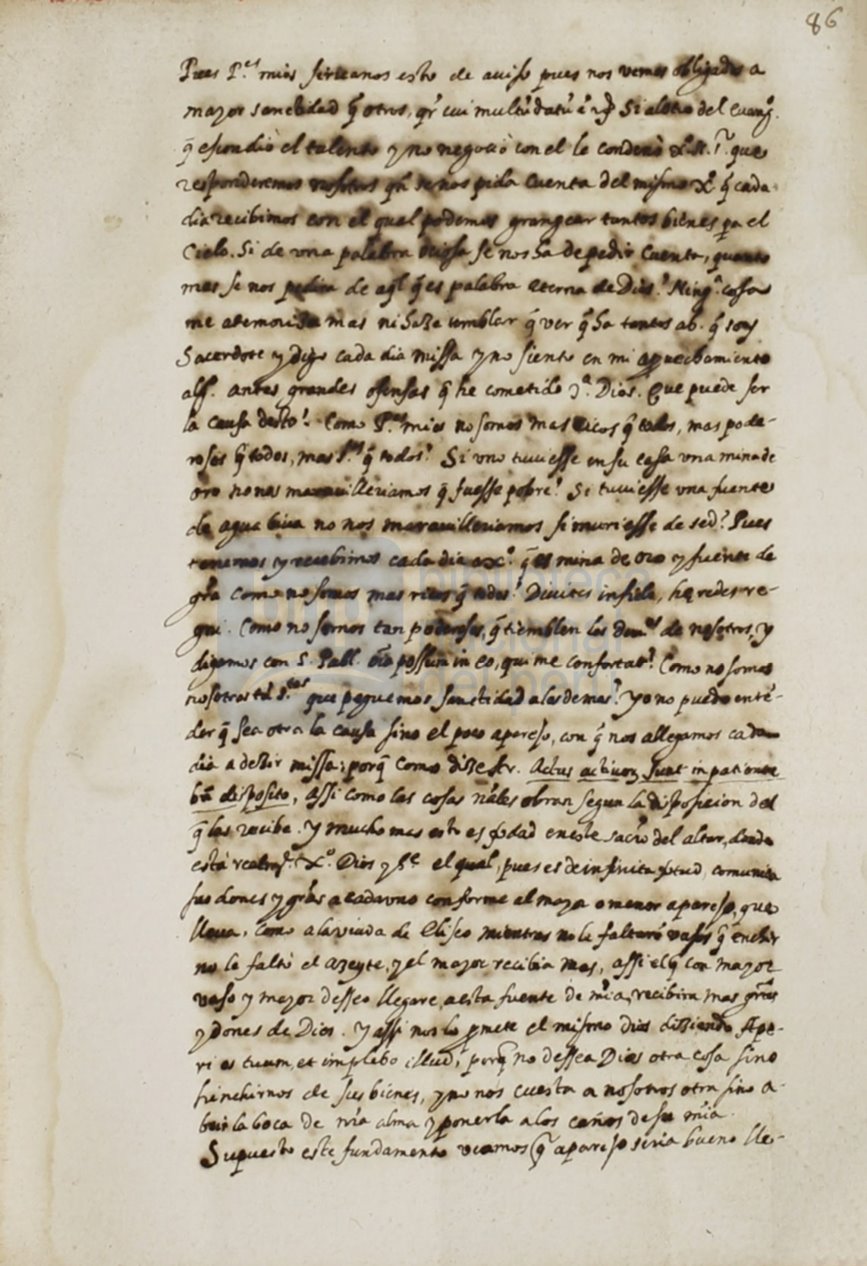 86
Pues P.es mios siruanos esto de auiso pues nos vemos obligados a
mayor sanctidad q̃ otros, qr̃ cui multũ datũ Si al otro del euang.
q̃ escondiò el talento y no negociò con el le condenò X.º N. S.r que
responderemos nosotros qñ se nos pida cuenta del mismo X.º q̃ cada
dia recibimos con el qual podemos grangear tantos bienes pa el
Cielo. Si de vna palabra ociosa se nos ha de pedir cuenta, quanto
mas se nos pedira de aq̃l q̃ es palabra eterna de Dios? Ning.ª cosa
me atemoriza mas ni haze temblar q̃ ver q̃ ha tantos añ. q̃ soy
Sacerdote y digo cada dia missa y no siento en mi aprouechamiento
alg. antes grandes ofensas q̃ he cometido Dios. Que puede ser
la causa desto? Como P.es mios no somos mas ricos q̃ todos, mas pode-
rosos q̃ todos, mas S.tos q̃ todos? Si vno tuuiesse en su casa vna mina de
oro no nos marauillariamos q̃ fuesse pobre? Si tuuiesse vna fuente
de agua biua no nos marauillariamos si muriesse de sed? Pues
tenemos y recebimos cada dia a X.º q̃ es mina de oro y fuente de
grã como no somos mas ricos q̃ todos? Diuites in fide, hæredes re-
gni. Como no somos tan poderosos, q̃ tiemblen los dem.os de nosotros, y
digamos con S. Pabl. oĩa possum in eo, qui me confortat? Como no somos
nosotros tã S.tos que peguemos sanctidad a las demas? Yo no puedo entẽ-
der q̃ sea otra la causa sino el poco aparejo, con q̃ nos allegamos cada
dia a dezir missa; porq̃ como dize Ar. Actus actiuorũ sunt in patiente
bñ disposito, Assi como las cosas nãles obran segun la disposicion del
q̃ las recibe. Y mucho mas esto es verdad en este sacrõ del altar, donde
està realm.te X.º Dios y h.e el qual, pues es de infinita virtud, comunica
sus dones y grãs a cada vno conforme al mayor o menor aparejo, que
lleua, como a la viuda de Eliseo mientras no le faltarõ vasos q̃ enchir
no le faltò el azeyte, y el mayor recibia mas, assi el q̃ con mayor
vaso y mayor desseo llegare, a esta fuente de mĩa, recibira mas grãs
y dones de Dios. Y assi nos lo promete el mismo dios diziendo Ape-
ri os tuum, et implebo illud, porq̃ no dessea Dios otra cosa sino
henchirnos de sus bienes, y no nos cuesta a nosotros otra sino a-
brir la boca de nrã alma y ponerla a los caños de su mĩa.
Supuesto este fundamento veamos q̃ aparejo seria bueno lle-